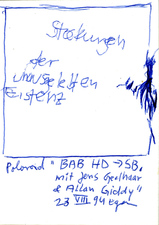 Stockungen
der
unausgeleßten
Existenz
Polaroid "BAB HD → SB,
mit Jens Gealhaar
& Allan Giddy"
23 VIII 94